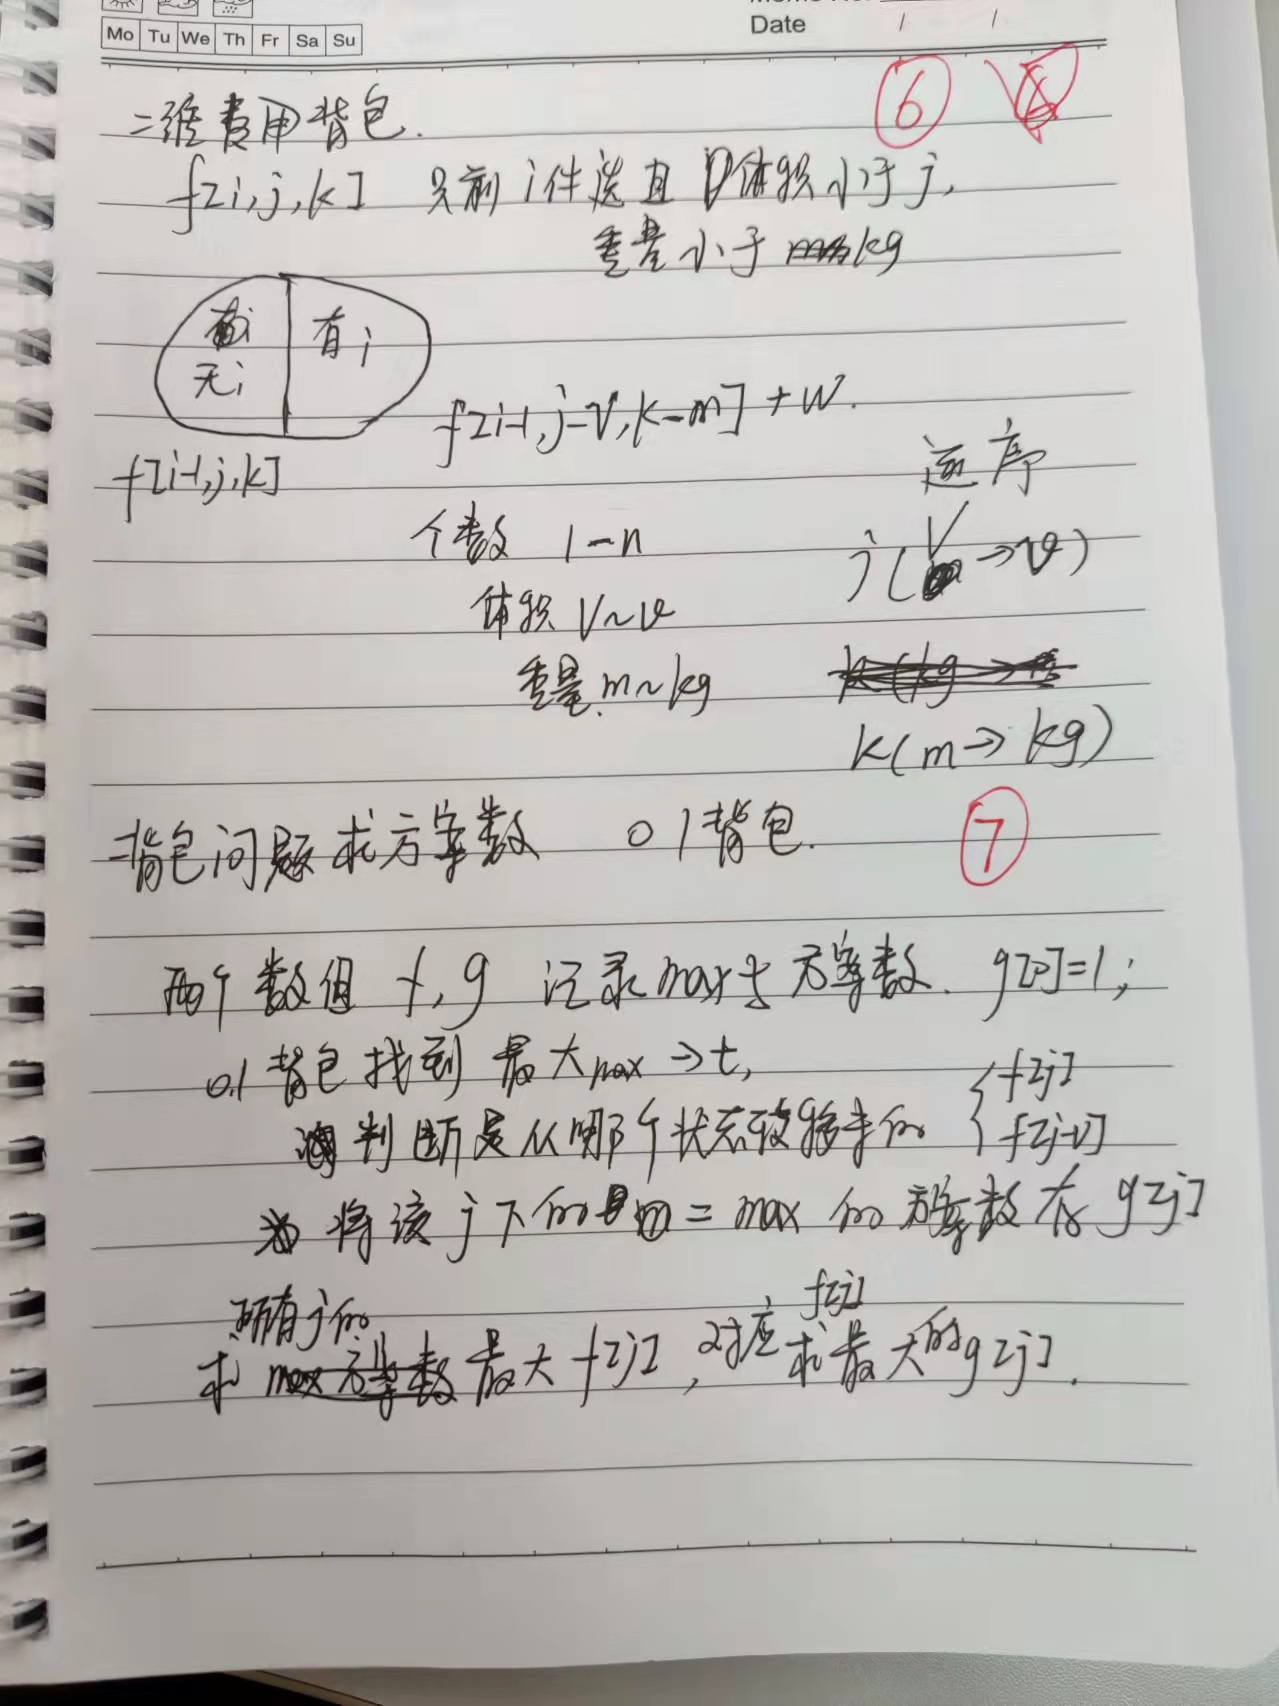 Mo Tu We Th Fr Sa Su
Date / /
二维费用背包.
⑥
f[i,j,k] 只前i件选且体积小于j,
重量小于 kg
无i 有i
f[i-1,j-v,k-m]+w.
f[i-1,j,k]
逆序
个数 1-n
j(V→v)
体积 V~v
重量 m~kg
k(m→kg)
背包问题求方案数 01背包.
⑦
两个数组 f,g 记录max与方案数. g[0]=1;
0.1背包找到最大max→t,
判断是从哪个状态转移来的 { f[j]
f[j-v]
将该j下的 m=max的方案数存g[j]
所有j的
求 最大f[j], 对应f[j]求最大的g[j].